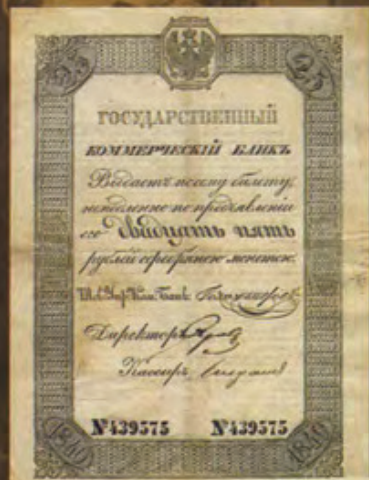 25 25
ГОСУДАРСТВЕННЫЙ
КОММЕРЧЕСКІЙ БАНКЪ
Выдастъ по сему билету,
немедленно по предъявленіи
его двадцать пять
рублей серебряною монетою.
Директоръ
Кассиръ
№439575 №439575
1840 1840